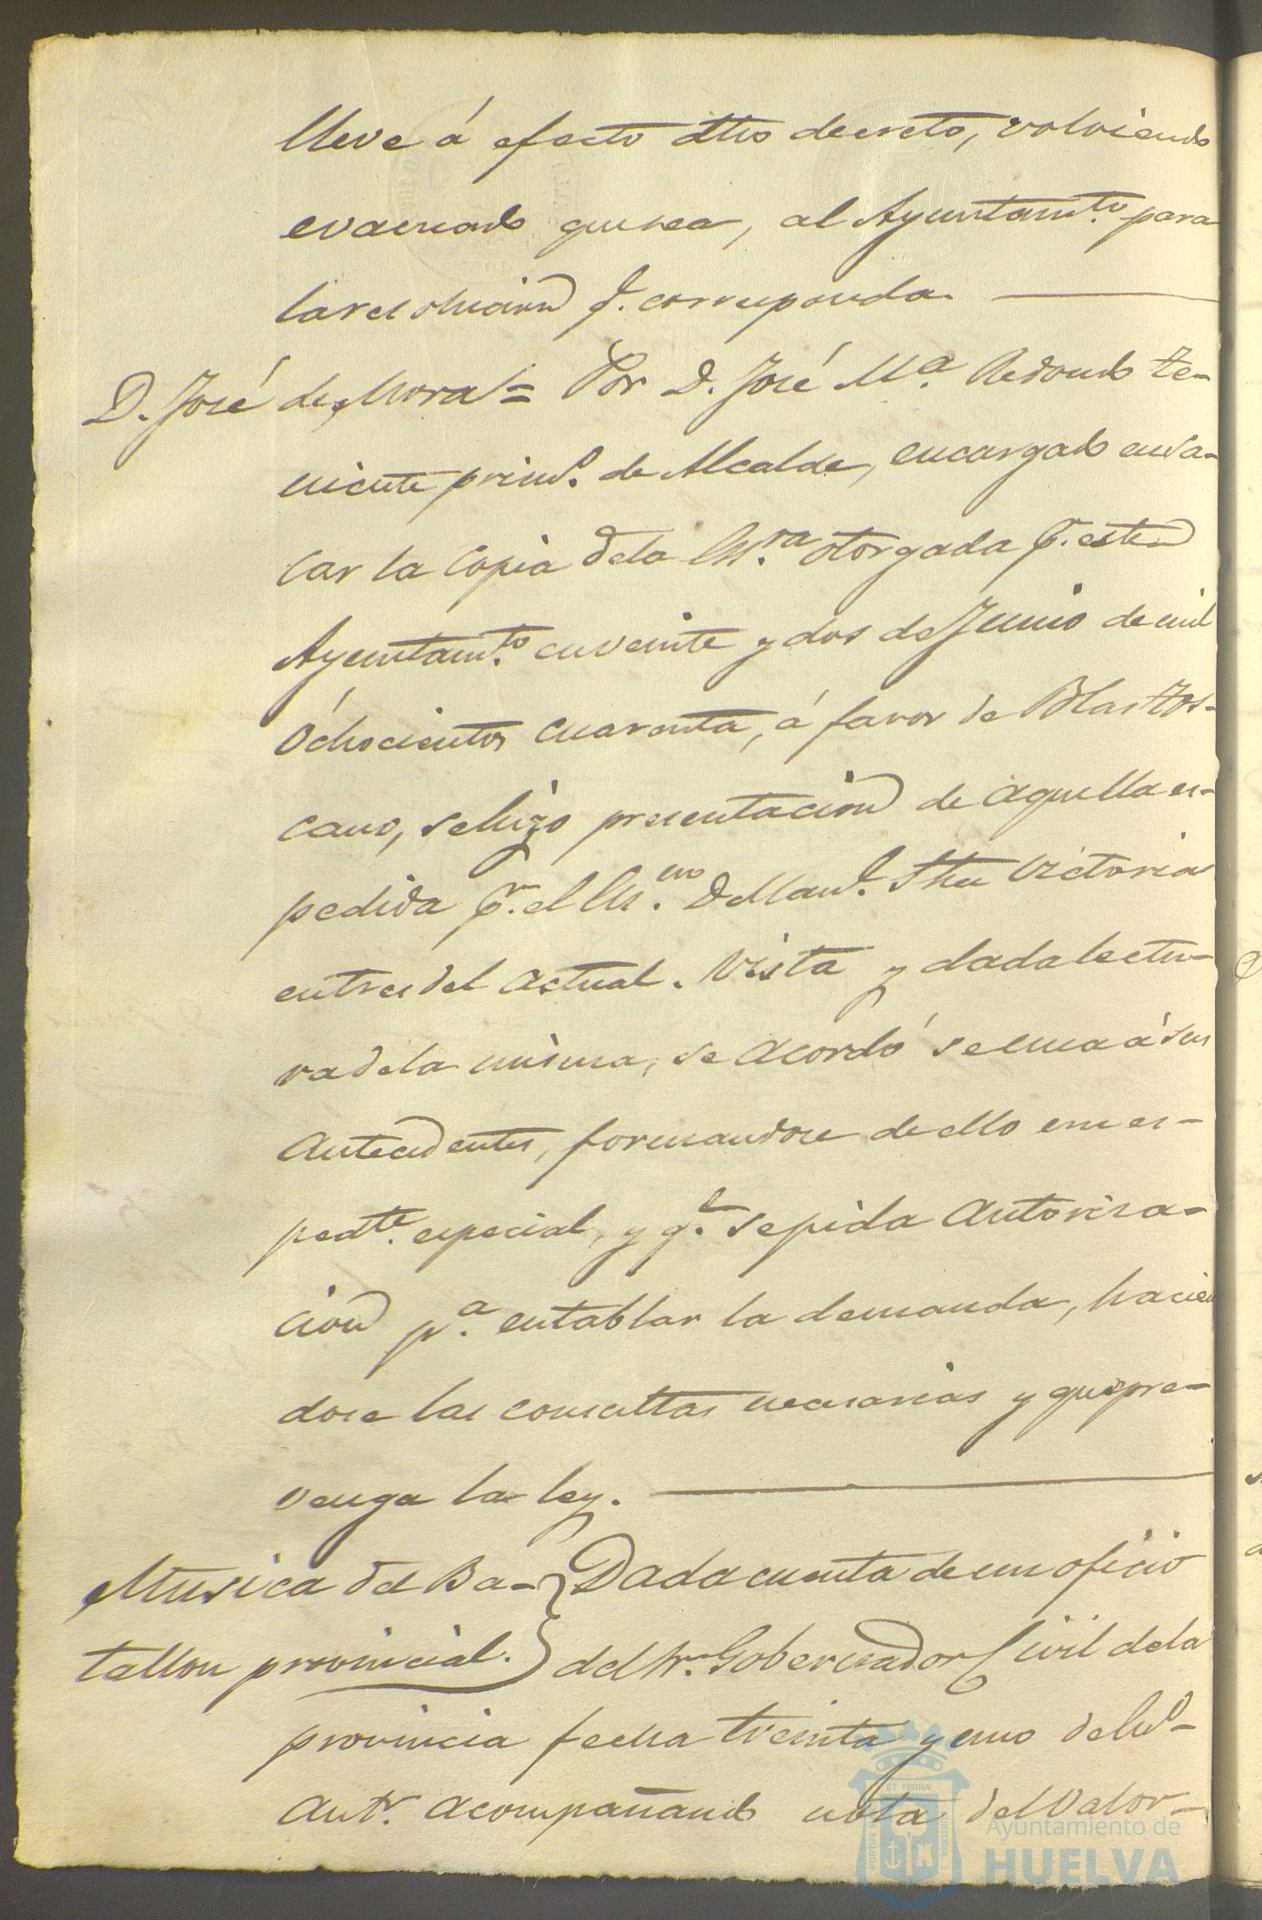 lleve á efecto dho decreto, volviendo
evacuado que sea, al Ayuntamto. para
la resolucion q. corresponda.
D. José de Mora = Por D. José Ma. Redondo te-
niente primo. de Alcalde, encargado en sa-
car la copia de la Essra. otorgada pr. este
Ayuntamto. en veinte y dos de Junio de mil
ochocientos cuarenta, á favor de Blas Tos-
cano, se hizo presentacion de aquella es-
pedida pr. el Essno. D. Manl. Victoria
en tres del actual. Vista y dada lectu-
ra de la misma, se acordó se una á sus
antecedentes, formandose de ello un es-
pedte. especial, y qe. se pida autoriza-
cion pa. entablar la demanda, hacien
dose las consultas necesarias y que pre-
venga la ley.
Musica del Ba- } Dada cuenta de un oficio
tallon provincial. } del Sr. Gobernador Civil de la
provincia fecha treinta y uno de
antr. acompañando nota del valor
PORTUS
ET TERRÆ
CUSTODIA
Ayuntamiento de
HUELVA